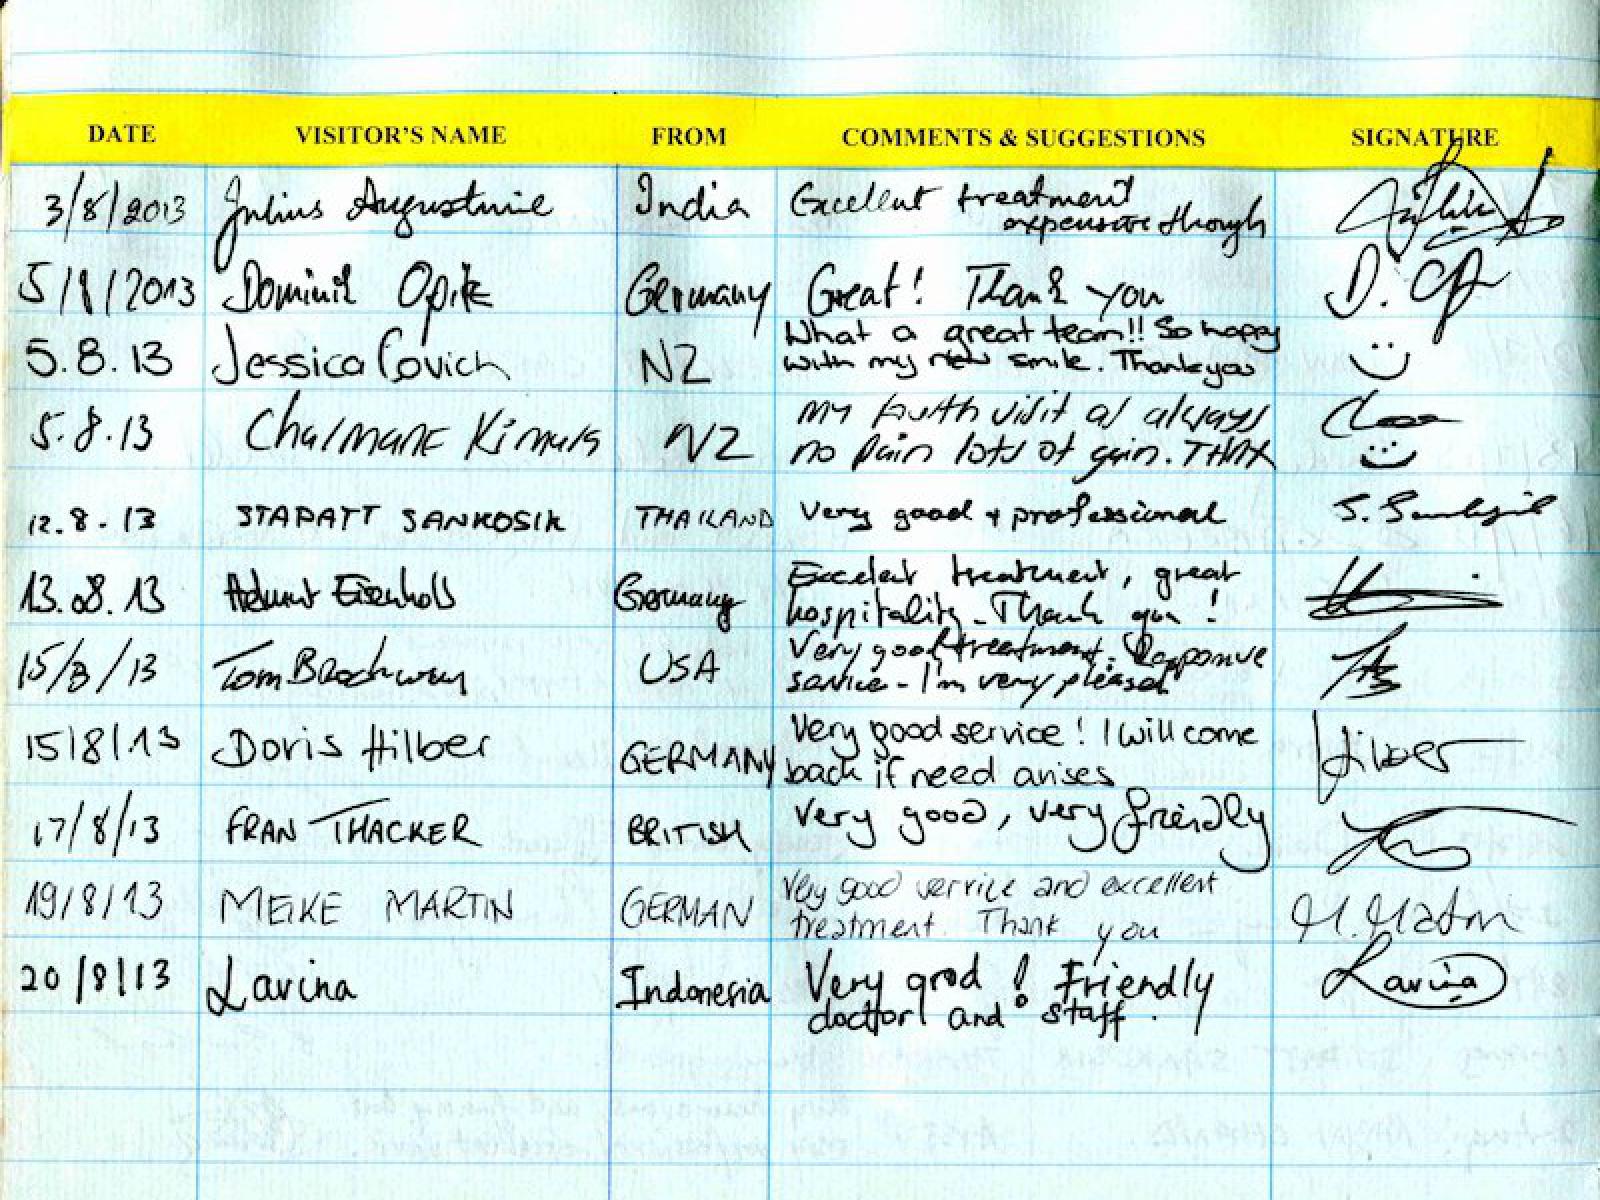 DATE VISITOR'S NAME FROM COMMENTS & SUGGESTIONS SIGNATURE
3/8/2013 Julius Augustine India Excellent treatment
expensive though
5/8/2013 Dominik Opitz Germany Great! Thank you D. Op
What a great team!! So happy
5.8.13 Jessica Covich NZ with my new smile. Thankyou
my fourth visit as always
5.8.13 Charmane NZ no pain lots of gain. THNX
12.8.13 STAPATT SANKOSIK THAILAND Very good + professional
13.08.13 Germany Excelent treatment, great
hospitality. Thank you!
Very good treatment. Responsive
15/8/13 Tom Brockway USA service - I'm very pleased
15/8/13 Doris Hilber GERMANY Very good service! I will come Hilber
back if need arises
17/8/13 FRAN THACKER BRITISH Very good, very friendly
19/8/13 MEIKE MARTIN GERMAN Very good service and excellent M. Martin
treatment. Thank you
20/8/13 Lavina Indonesia Very good! Friendly Lavina
doctor and staff.